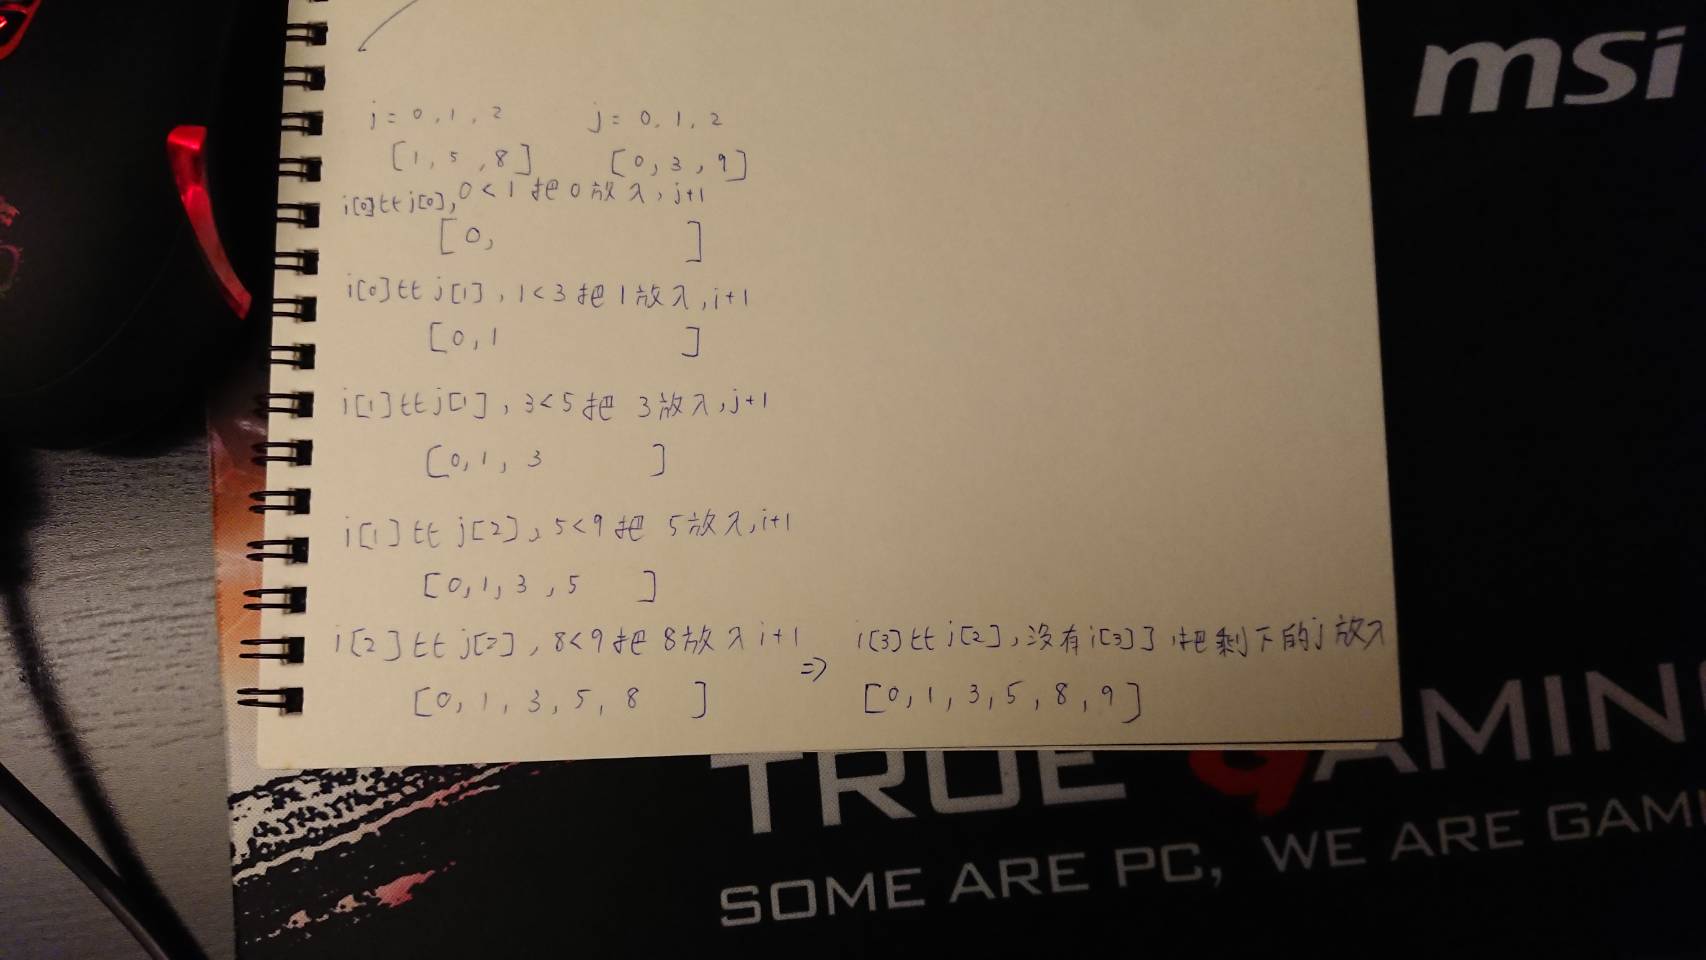 msi
j = 0, 1, 2 j = 0, 1, 2
[1, 5, 8] [0, 3, 9]
i[0]比j[0], 0<1 把0放入, j+1
[0, ]
i[0]比j[1], 1<3把1放入, i+1
[0, 1 ]
i[1]比j[1], 3<5把 3放入, j+1
[0, 1, 3 ]
i[1]比j[2], 5<9把 5放入, i+1
[0, 1, 3, 5 ]
i[2]比j[2], 8<9把8放入 i+1 => i[3]比j[2], 沒有i[3]], 把剩下的j放入
[0, 1, 3, 5, 8 ] [0, 1, 3, 5, 8, 9]
TRUE GAMING
SOME ARE PC, WE ARE GAMI